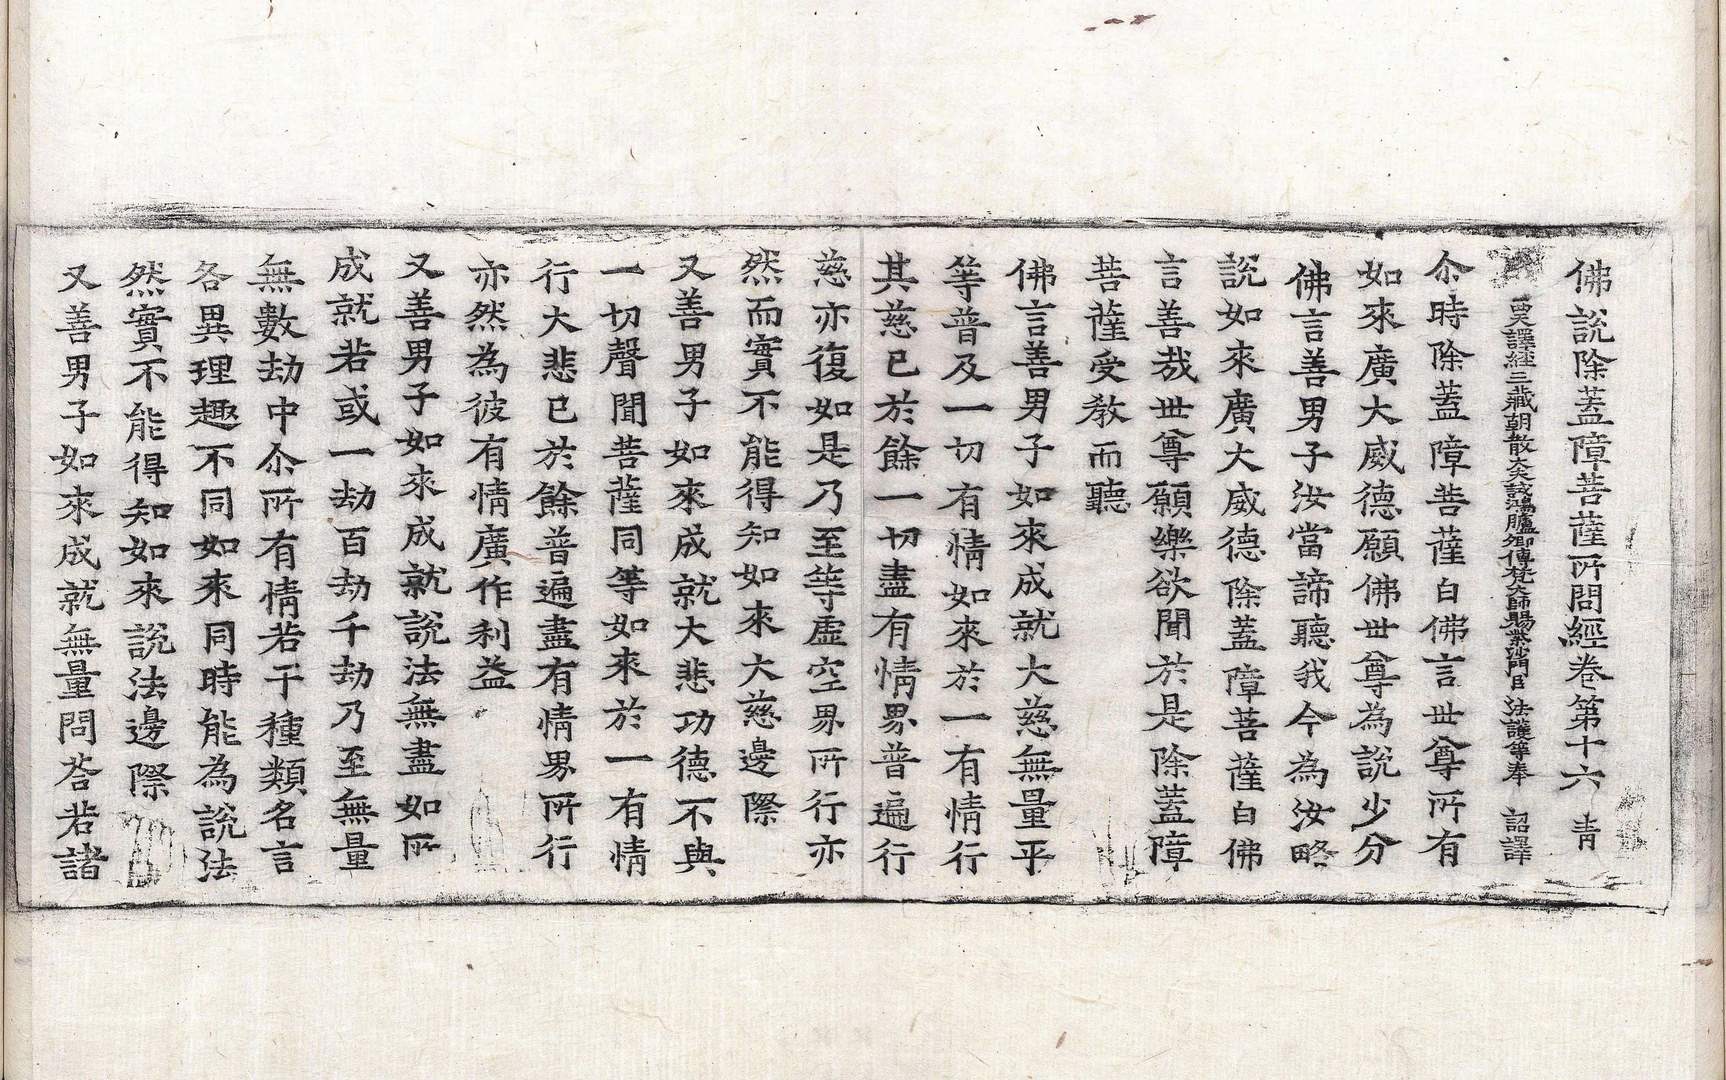 佛說除蓋障菩薩所問經卷第十六 青
譯經三藏朝散大夫試鴻臚卿傳梵大師賜紫沙門臣 法護等奉 詔譯
尒時除蓋障菩薩白佛言世尊所有
如來廣大威德願佛世尊為說少分
佛言善男子汝當諦聽我今為汝略
說如來廣大威德除蓋障菩薩白佛
言善哉世尊願樂欲聞於是除蓋障
菩薩受教而聽
佛言善男子如來成就大慈無量平
等普及一切有情如來於一有情行
其慈已於餘一切盡有情界普遍行
慈亦復如是乃至等虛空界所行亦
然而實不能得知如來大慈邊際
又善男子如來成就大悲功德不與
一切聲聞菩薩同等如來於一有情
行大悲已於餘普遍盡有情界所行
亦然為彼有情廣作利益
又善男子如來成就說法無盡如所
成就若或一劫百劫千劫乃至無量
無數劫中尒所有情若干種類名言
各異理趣不同如來同時能為說法
然實不能得知如來說法邊際
又善男子如來成就無量問荅若諸